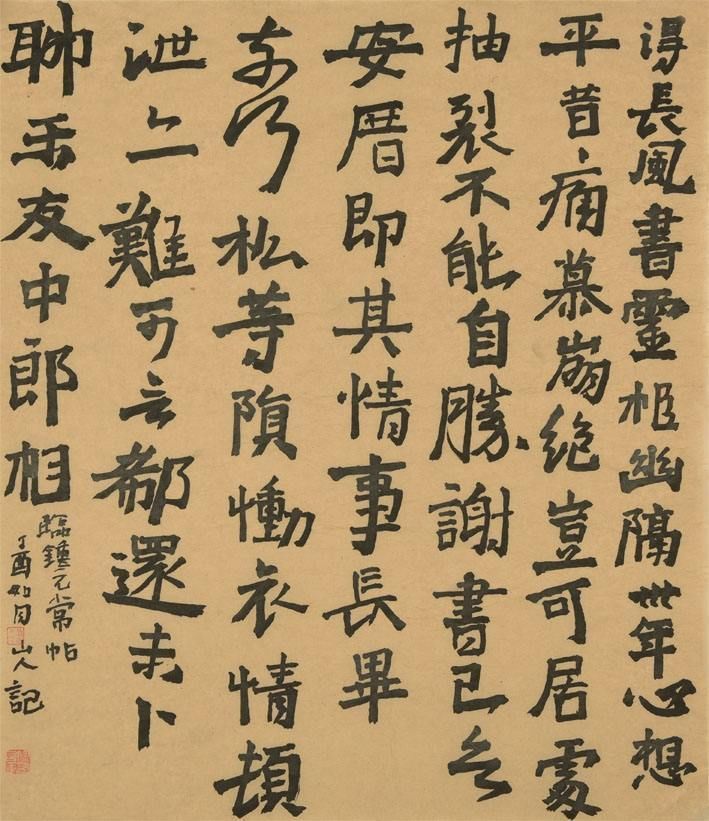 得長風書靈柩幽隔卅年心想
平昔痛慕崩絕豈可居處
抽裂不能自勝謝書已
安厝即其情事長畢
松等隕慟哀情頓
泄亡難可言郗還未卜
聊示友中郎相
臨鍾元常帖
丁酉如月山人記